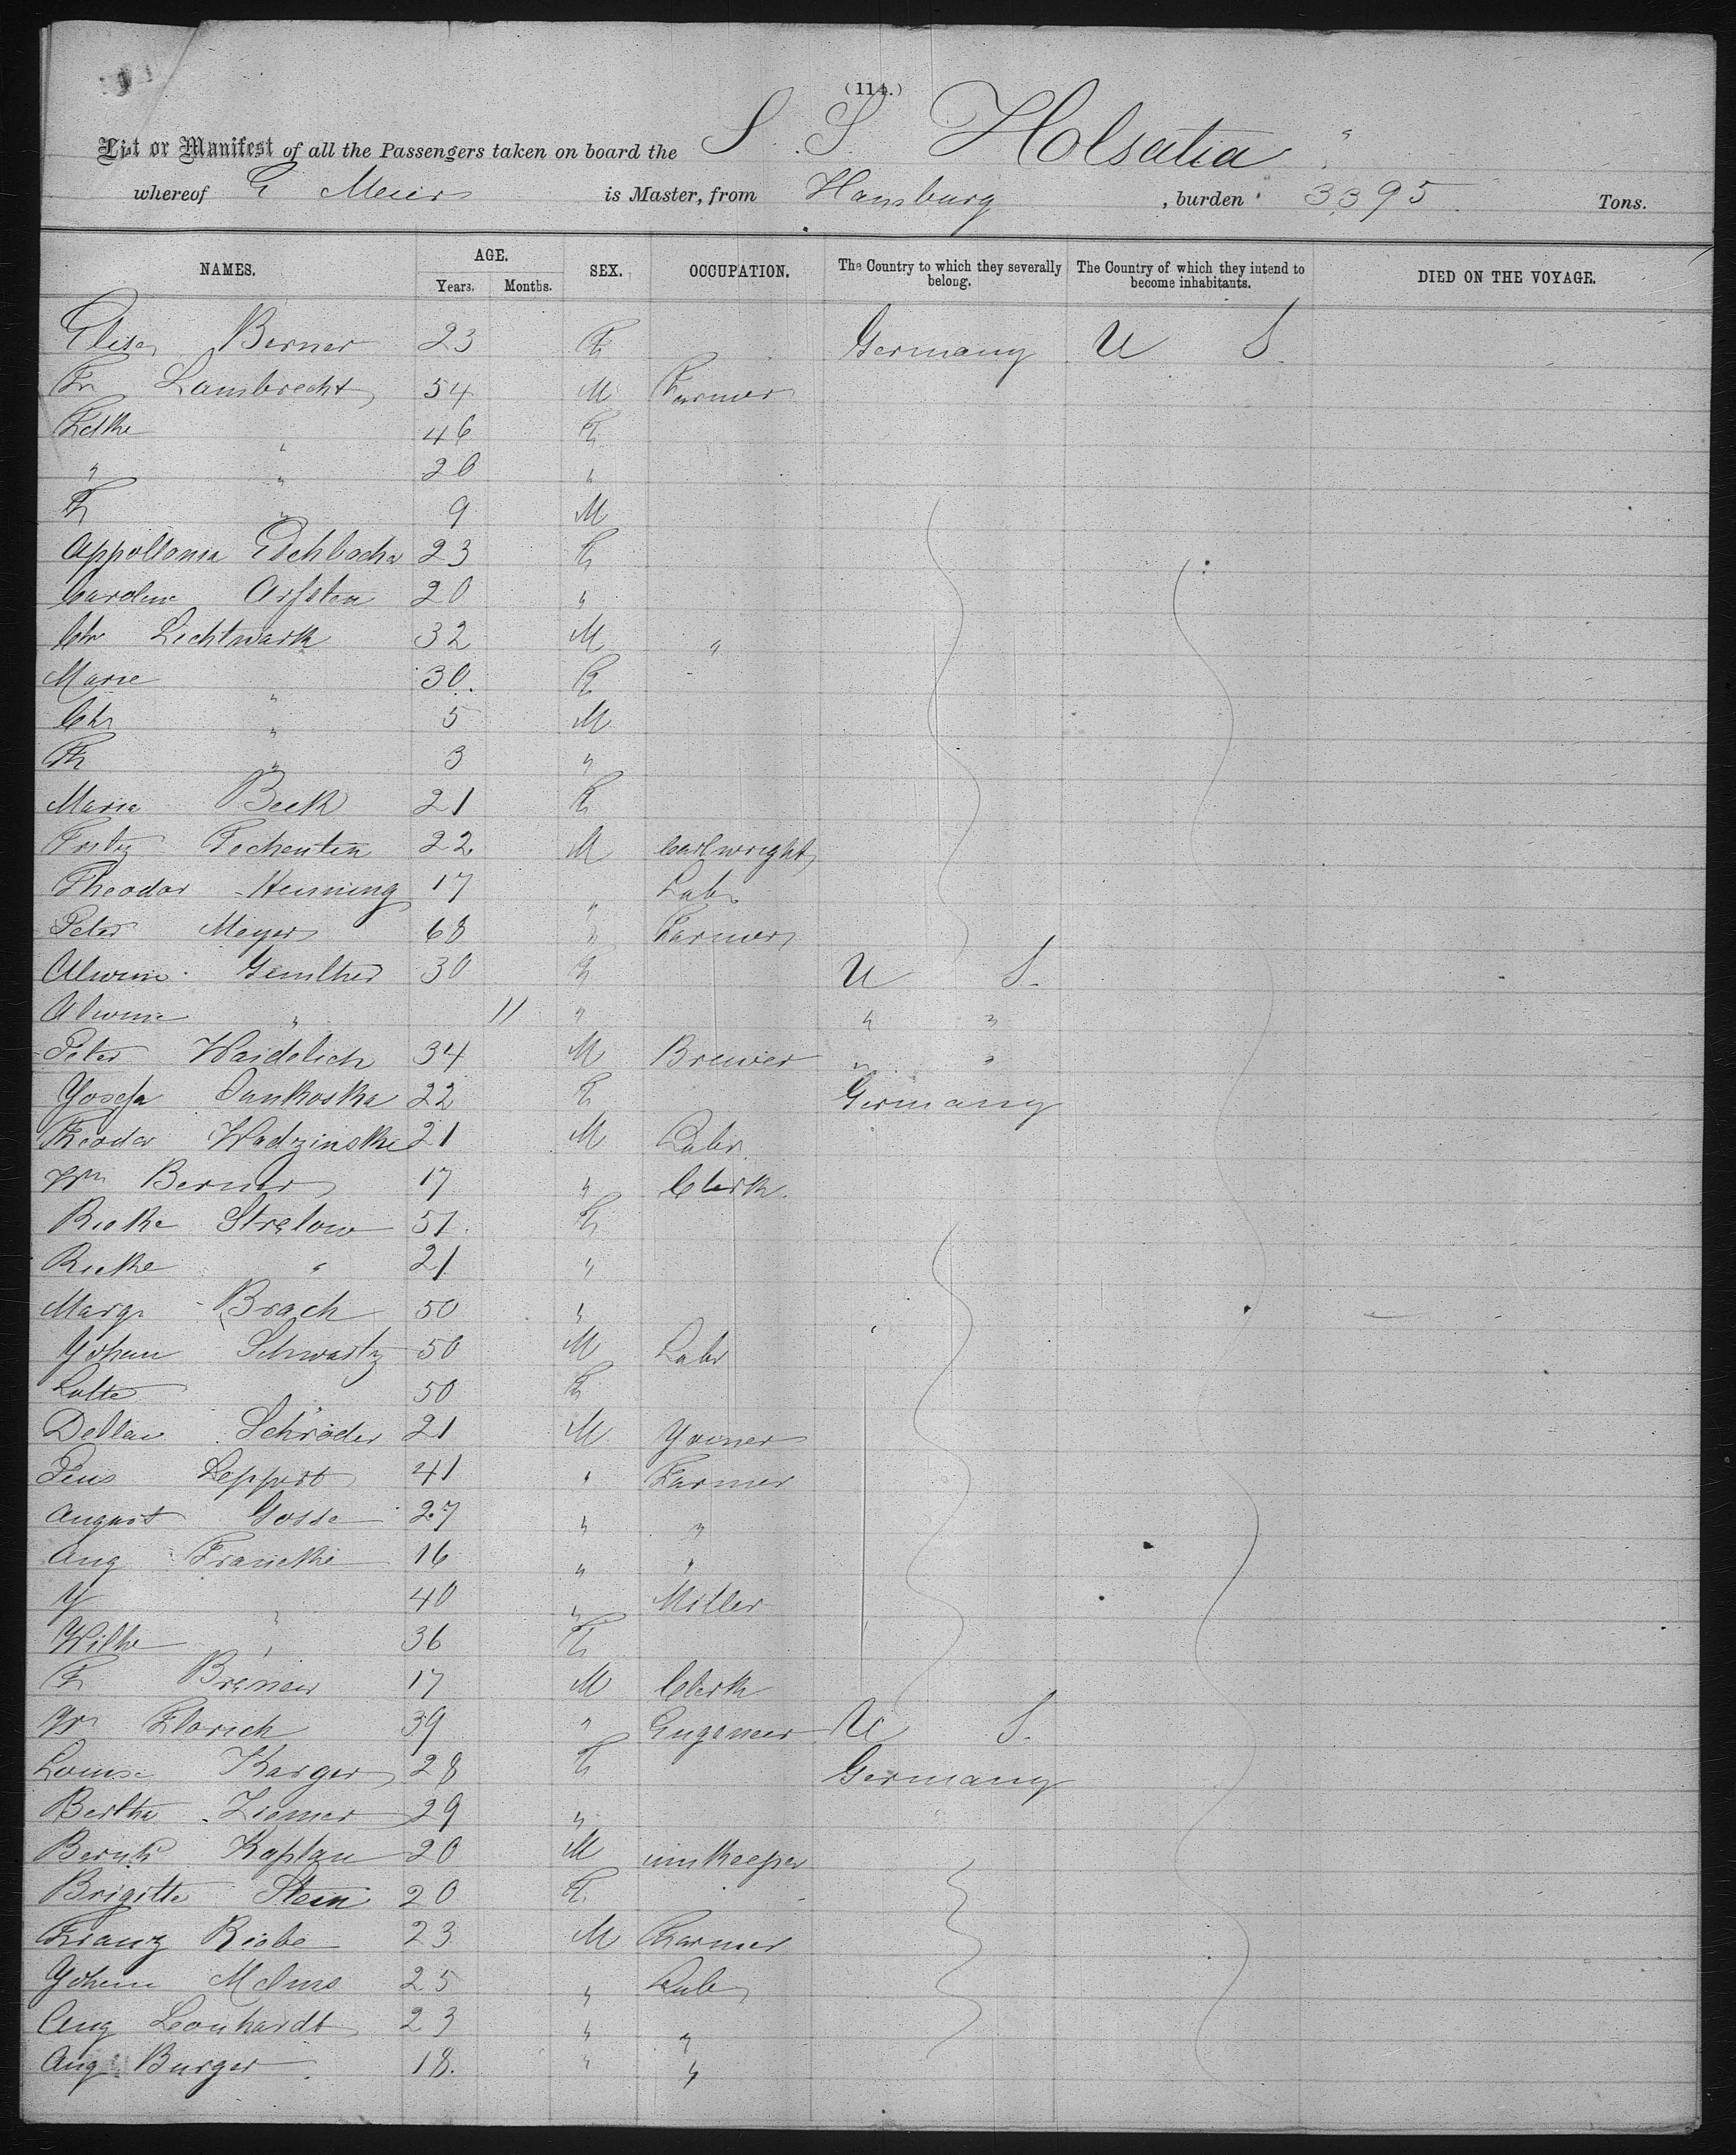 (114.)
List or Manifest of all the Passengers taken on board the S. S. Holsatia
whereof E Meier is Master, from Hamburg, burden 3395 Tons.
NAMES. AGE. SEX. OCCUPATION. The Country to which they severally belong. The Country of which they intend to become inhabitants. DIED ON THE VOYAGE.
Years. Months.
Elise Berner 23 F Germany U S
Fr Lambrecht 54 M Farmer
" 46 F
" " 20 "
F " 9 M
Appollonia 23 F
Caroline Arfsten 20 "
Chr Lichtwark 32 M "
Marie " 30 F
Chr " 5 M
Fr " 3 "
Maria Beek 21 F
Fritz 22 M Cartwright
Theodor Henning 17 " Labr
Peter Meyer 68 " Farmer
Alwine Genther 30 F U S.
Alwine " 11 " " "
Peter Waidelich 34 M Brewer " "
Josefa Jankoska 22 F Germany
Theodor Wadzinske 21 M Labr
Wm Berner 17 " Clerk
Rieke Strelow 51 F
Rieke " 21 "
Margr Brach 50 "
Johan Schwartz 50 M Labr
Lotte " 50 F
Schröder 21 M Joiner
Leppert 41 " Farmer
August Gosse 27 " "
Aug Francke 16 " "
J " 40 " Miller
Wilhe " 36 F
F 17 M Clerk
Wm Florich 39 " Engeneer U S.
Louise Karger 28 F Germany
Bertha Ziemer 29 "
Kaplan 20 M innkeeper
Brigitte Stein 20 F
Franz Riebe 23 M Farmer
Johan Melms 25 " Lab
Aug Leonhardt 23 " "
Aug Burger 18. " "